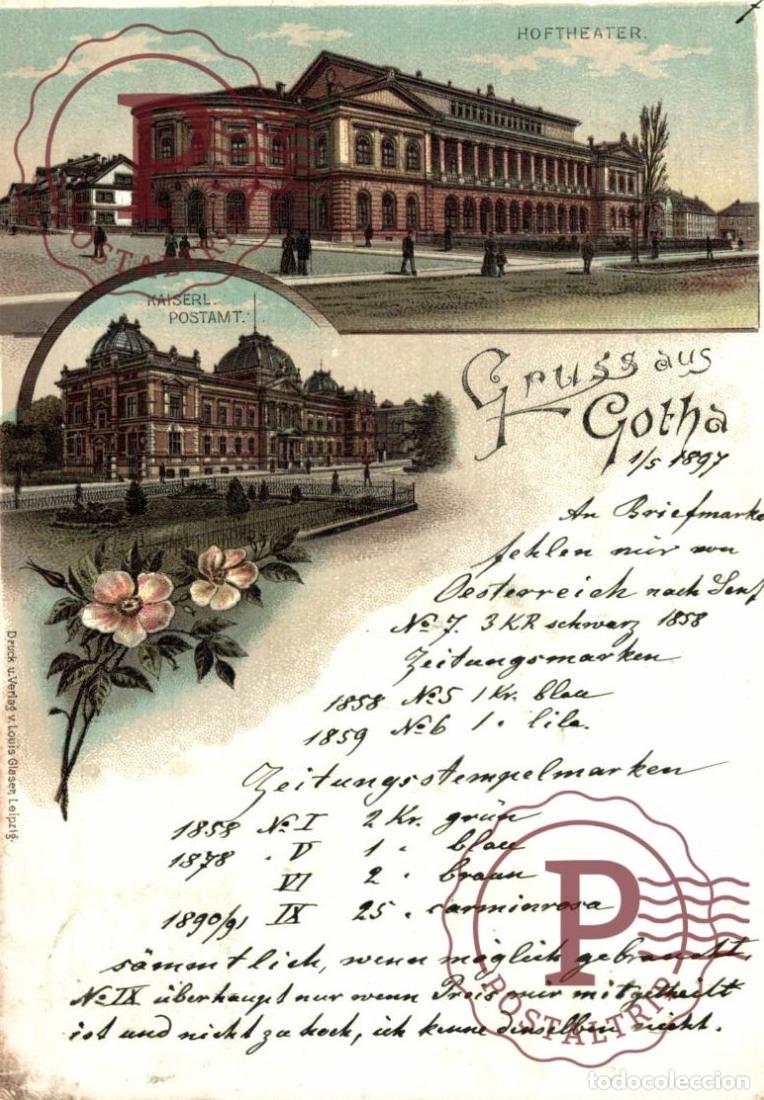 HOFTHEATER.
KAISERL.
POSTAMT.
Gruss aus
Gotha
1/5 1897
An Briefmarke
fehlen nur von
Oesterreich nach Senf
No 7. 3 KR schwarz 1858
Zeitungsmarken
1858 No 5 1 Kr. blau
1859 No 6 1 " lila.
Zeitungsstempelmarken
1858 No I 2 Kr. grün
1878 " V 1 " blau
VI 2 " braun
1890/91 IX 25 " carminrosa
sämmtlich, wenn möglich gebraucht.
No IX überhaupt nur wenn Preis mir mitgetheilt
ist und nicht zu hoch, ich kenne denselben nicht.
Druck u. Verlag v. Louis Glaser, Leipzig.
P
POSTALTRIP
P
POSTALTRIP
todocoleccion.net